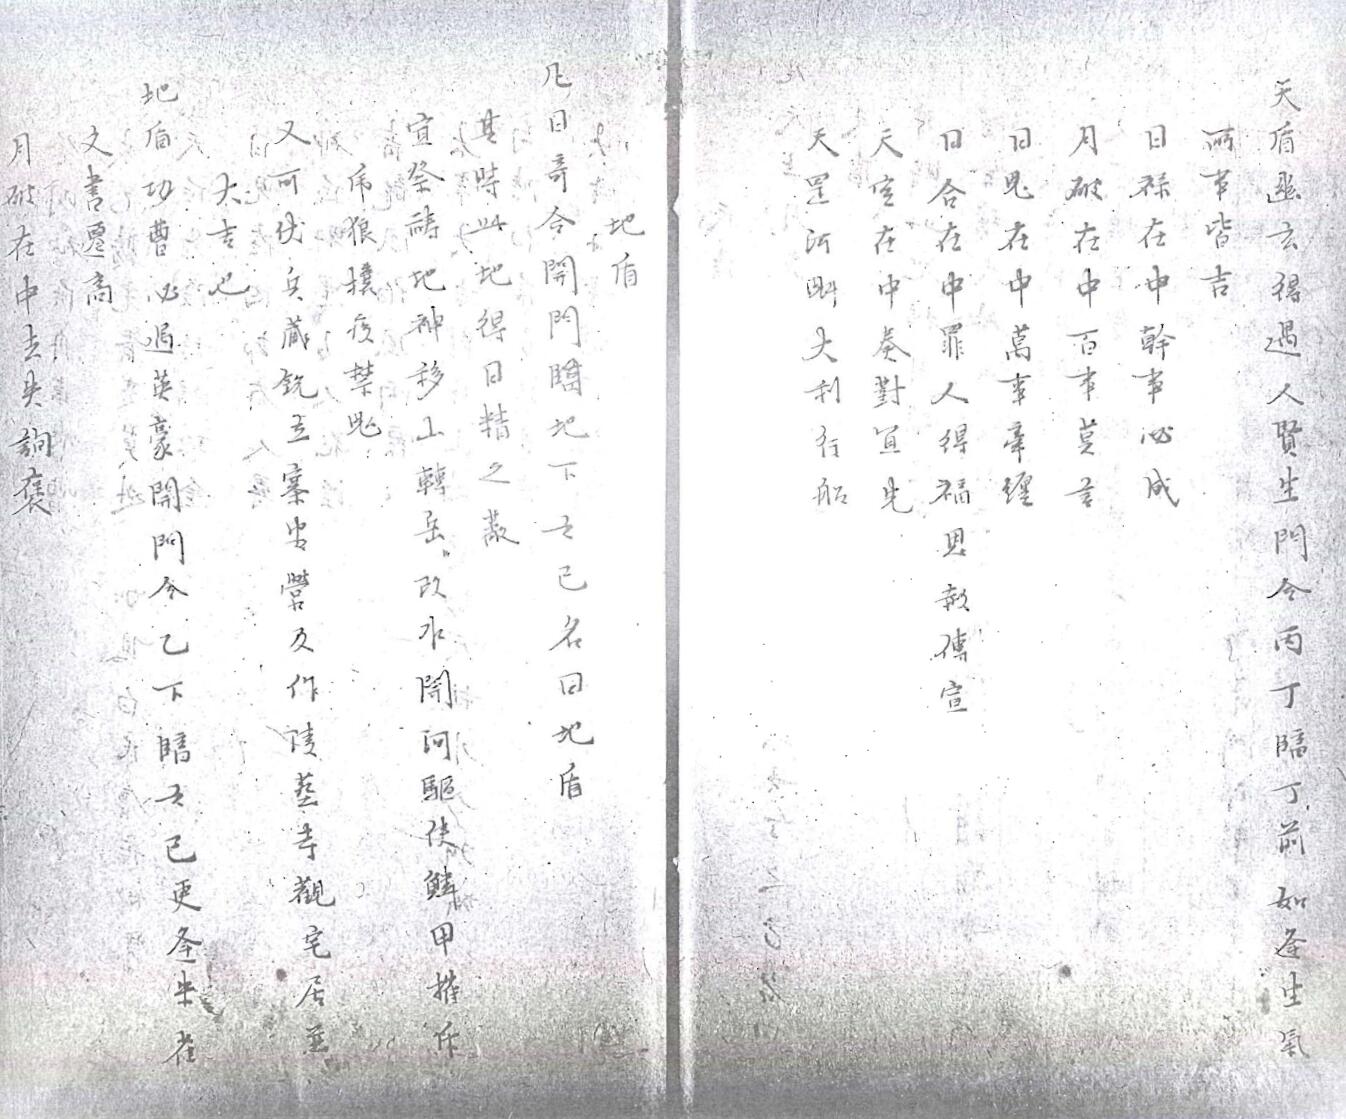 天盾幽玄得遇人賢生門合丙丁臨丁前如逢生氣
所事皆吉
日祿在中幹事必成
月破在中百事莫言
日鬼在中萬事牽纏
日合在中罪人得福恩赦傳宣
天空在中奏對宜先
天罡河魁大利行船
地盾
凡日奇合開門臨地下六己名曰地盾
其時此地得日精之蔽
宜祭禱地神移山轉岳改水開河驅使鱗甲摧斥
虎狼攘疫禁鬼
又可伏兵藏銳立寨安營及作陵墓寺觀宅居並
大吉也
地盾功曹必遇英豪開門合乙下臨六己更逢朱雀
文書遷高
月破在中去失詢褒